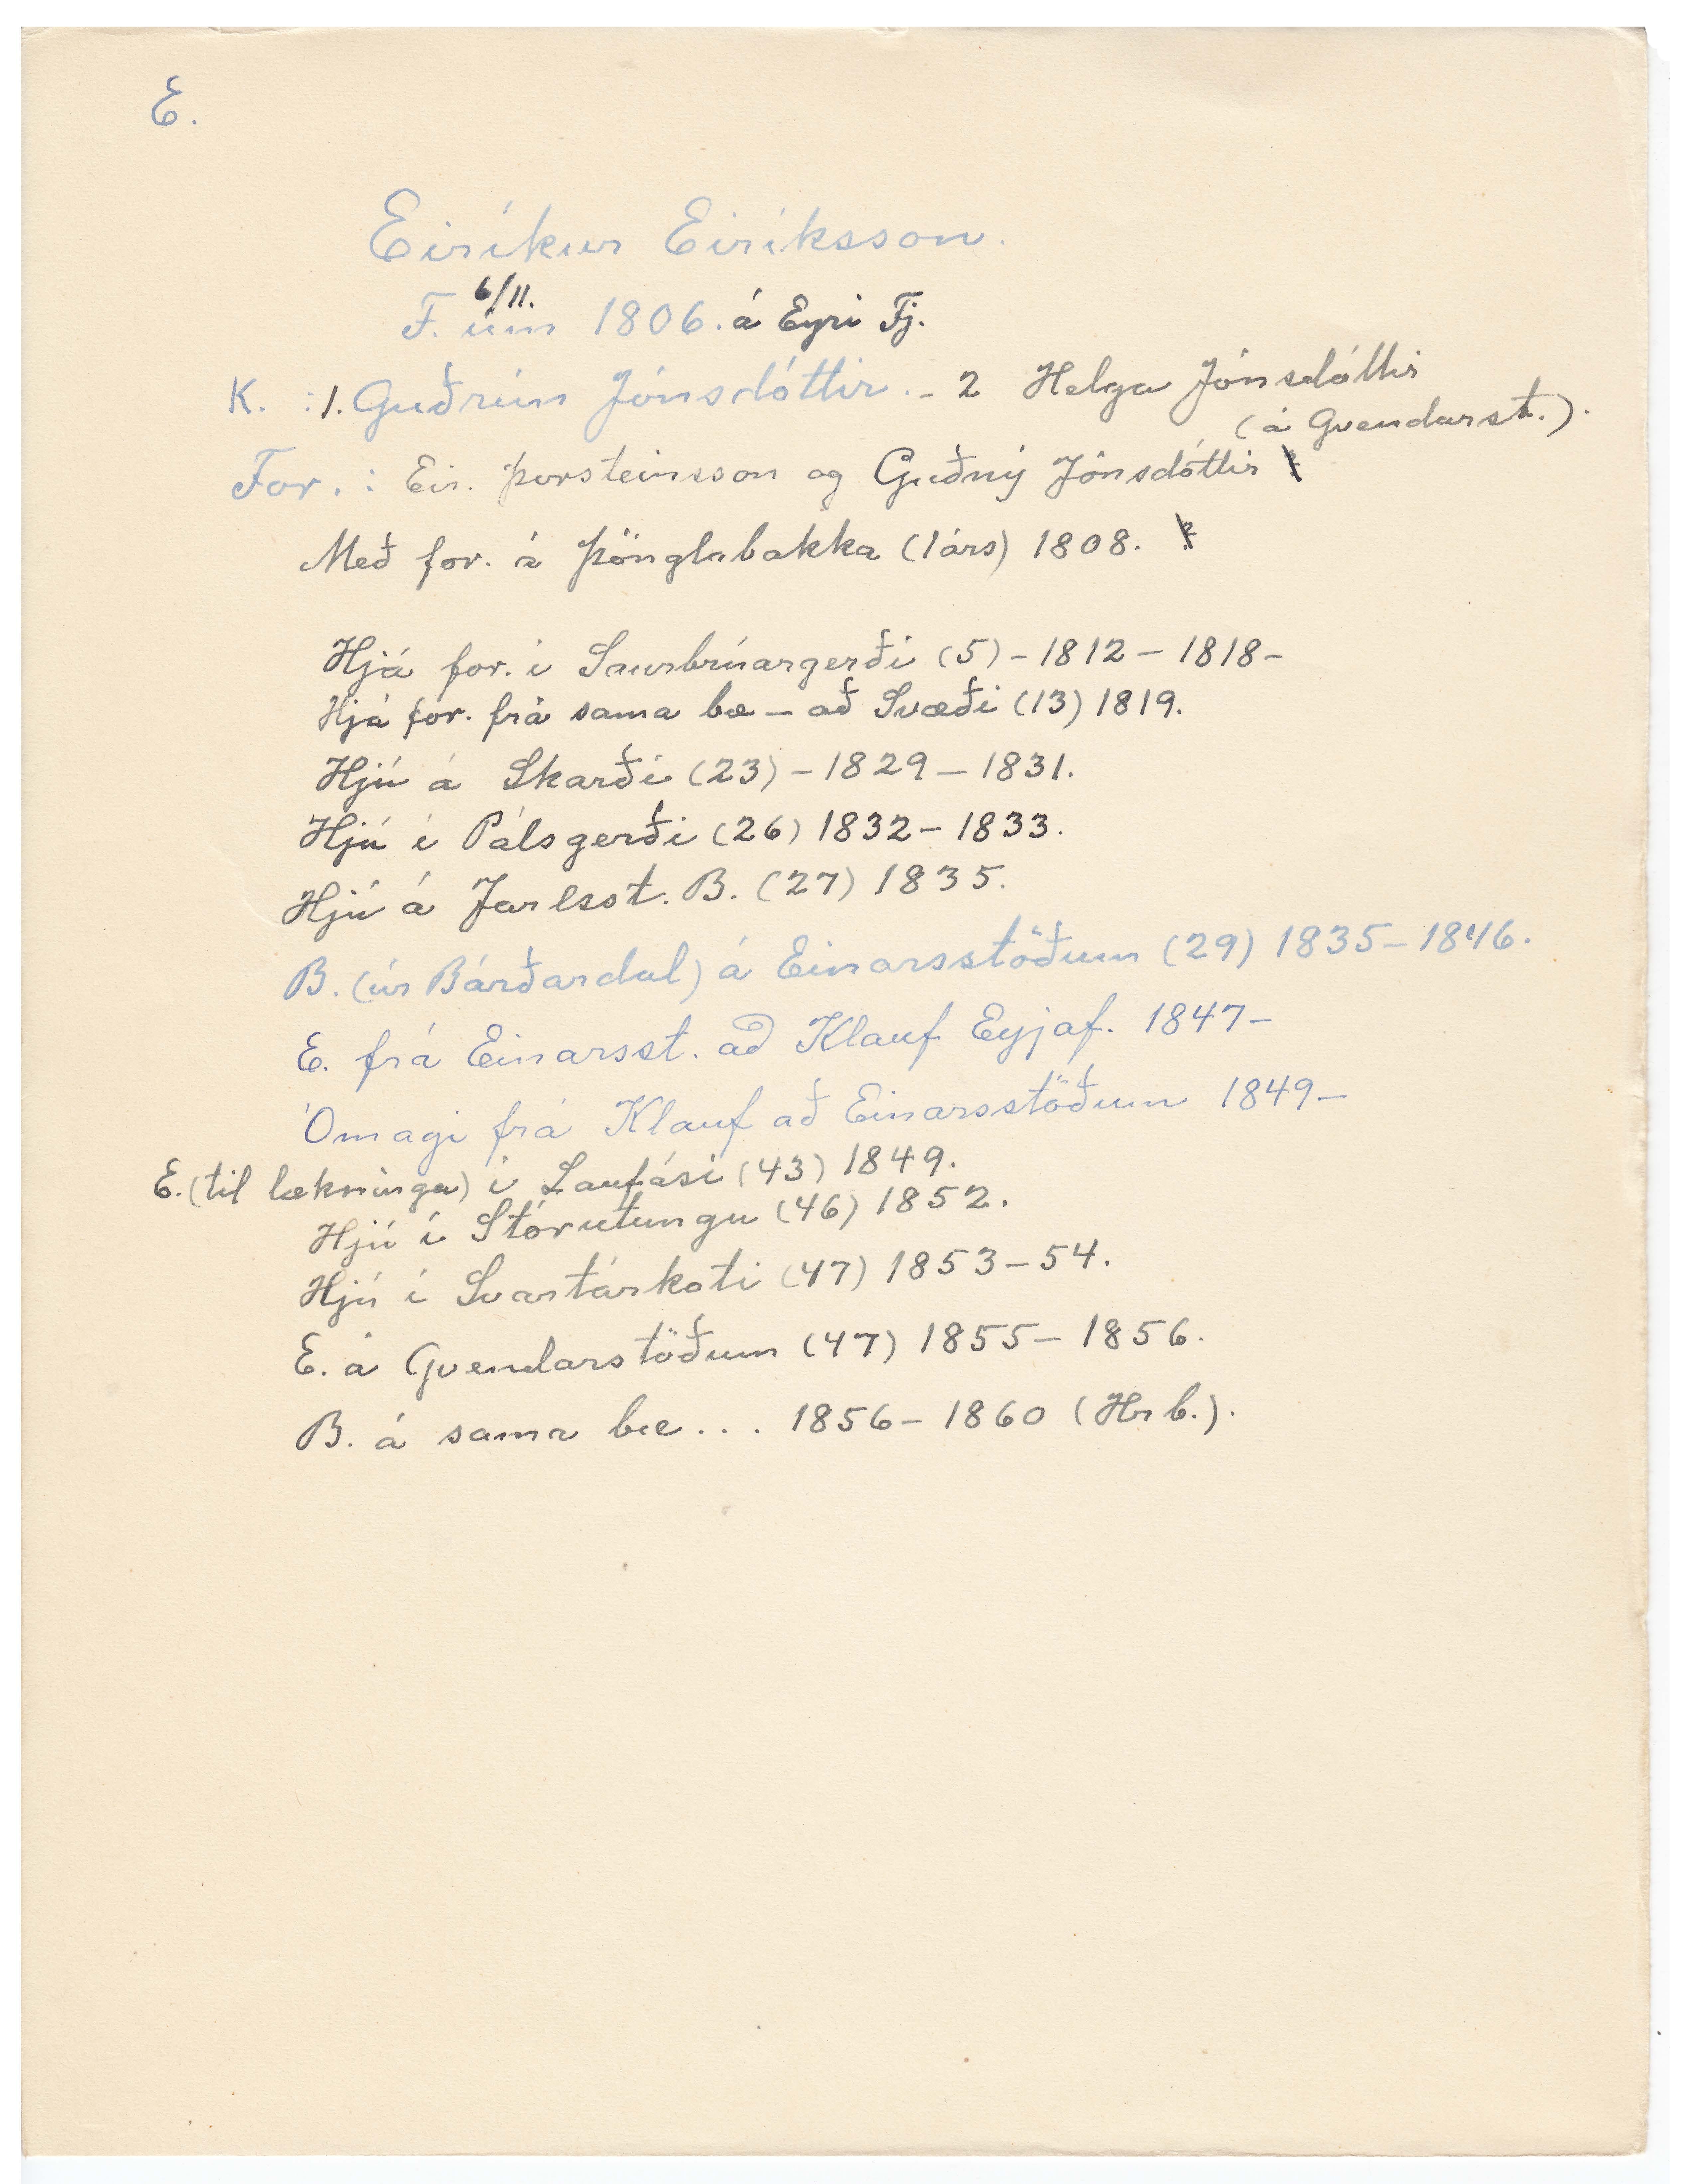 E.
Eiríkur Eiríksson.
6/11.
F. úm 1806. á Eyri Fj.
K. : 1. Guðrún Jónsdóttir. - 2 Helga Jónsdóttir
(á Gvendarst.).
For. : Eir. Þorsteinsson og Guðný Jónsdóttir
Með for. á Þönglabakka (1 árs) 1808.
Hjá for. í Saurbrúargerði (5) - 1812 - 1818 -
Hjá for. frá sama bæ - að Svæði (13) 1819.
Hjú á Skarði (23) - 1829 - 1831.
Hjú í Pálsgerði (26) 1832 - 1833.
Hjú á Jarlsst. B. (27) 1835.
B. (úr Bárðardal) á Einarsstöðum (29) 1835 - 1846.
E. frá Einarsst. að Klauf Eyjaf. 1847 -
Ómagi frá Klauf að Einarsstöðum 1849 -
E. (til lækninga) í Laufási (43) 1849.
Hjú í Stórutungu (46) 1852.
Hjú í Svartárkoti (47) 1853 - 54.
E. á Gvendarstöðum (47) 1855 - 1856.
B. á sama bæ . . . 1856 - 1860 (Hrb.).